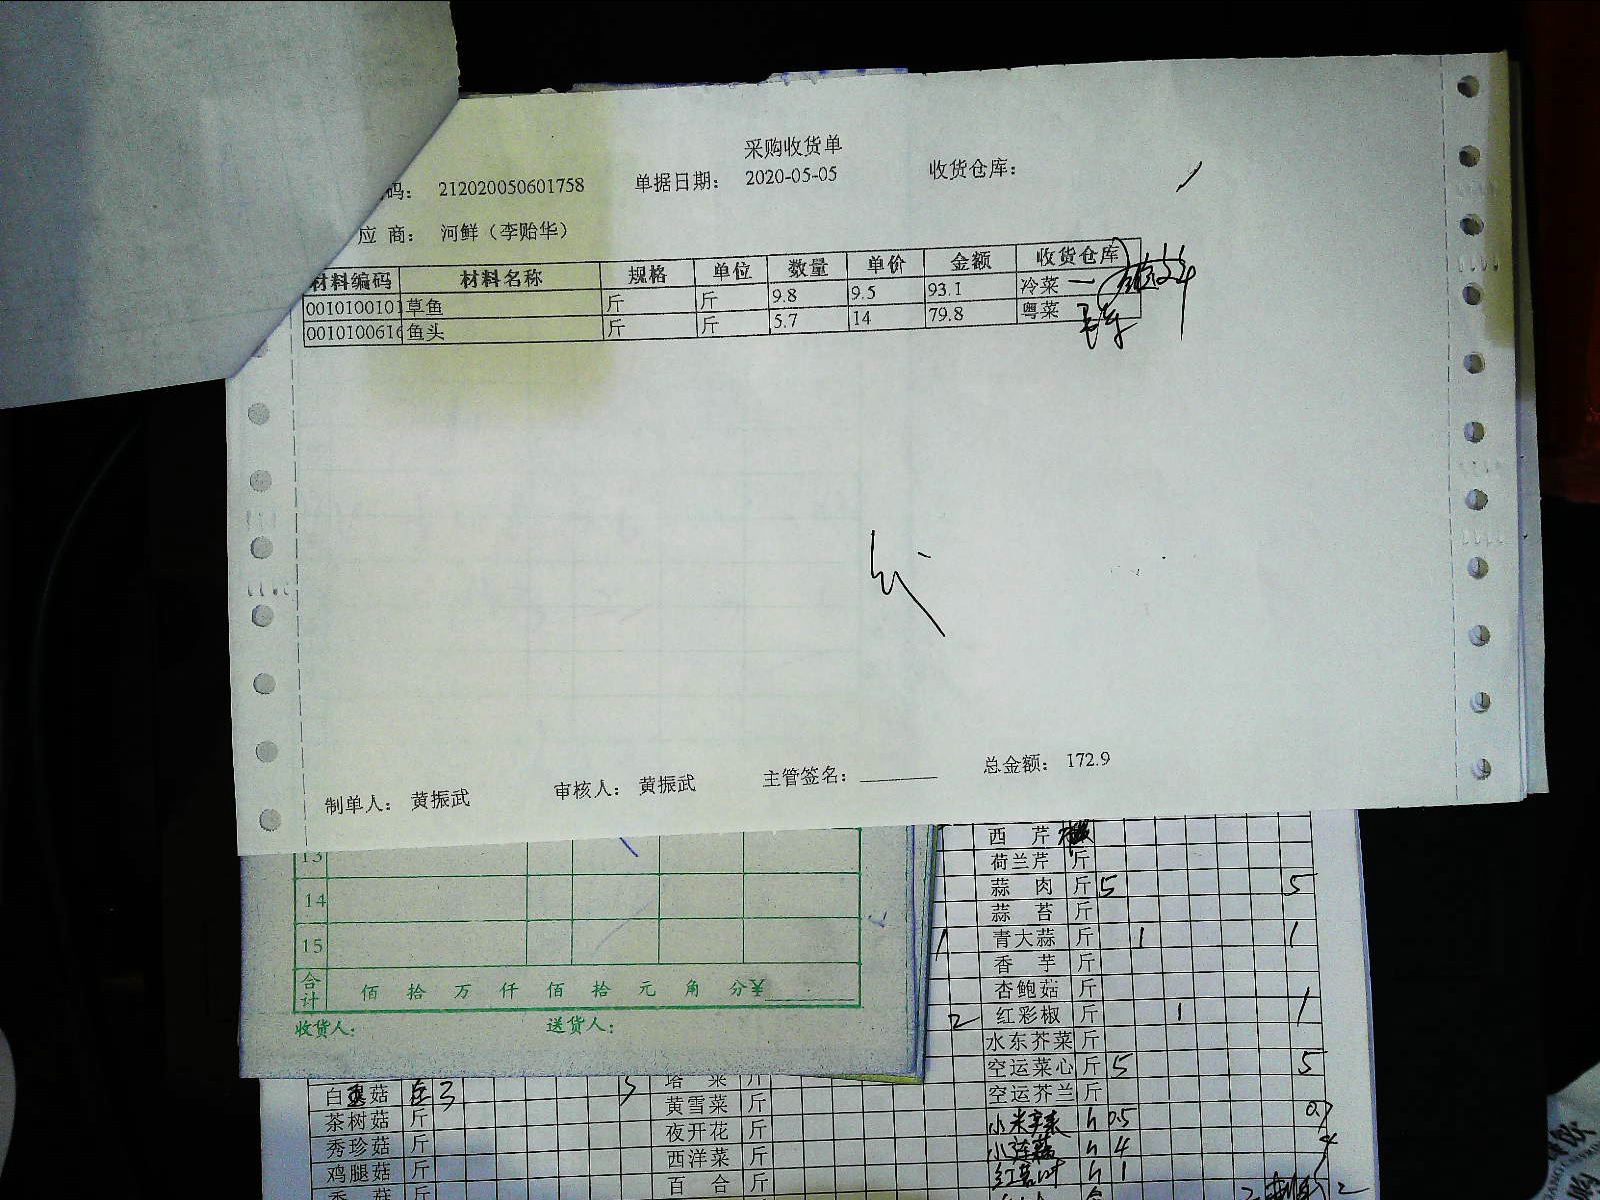 采购收货单
码： 212020050601758 单据日期： 2020-05-05 收货仓库：
应 商： 河鲜（李贻华）
材料编码 材料名称 规格 单位 数量 单价 金额 收货仓库
0010100101 草鱼 斤 斤 9.8 9.5 93.1 冷菜
0010100616 鱼头 斤 斤 5.7 14 79.8 粤菜
制单人： 黄振武 审核人： 黄振武 主管签名： 总金额： 172.9
13
14
15
合计 佰 拾 万 仟 佰 拾 元 角 分¥
收货人： 送货人：
西 芹
荷兰芹 斤
蒜 肉 斤 5 5
蒜 苔 斤
青大蒜 斤 1 1
香 芋 斤
杏鲍菇 斤
2 红彩椒 斤 1 1
水东芥菜 斤
空运菜心 斤 5 5
空运芥兰 斤
0.5
4
1
白 菇 3 5
茶树菇 斤
秀珍菇 斤
鸡腿菇 斤
香 菇 斤
塔 菜 斤
黄雪菜 斤
夜开花 斤
西洋菜 斤
百 合 斤